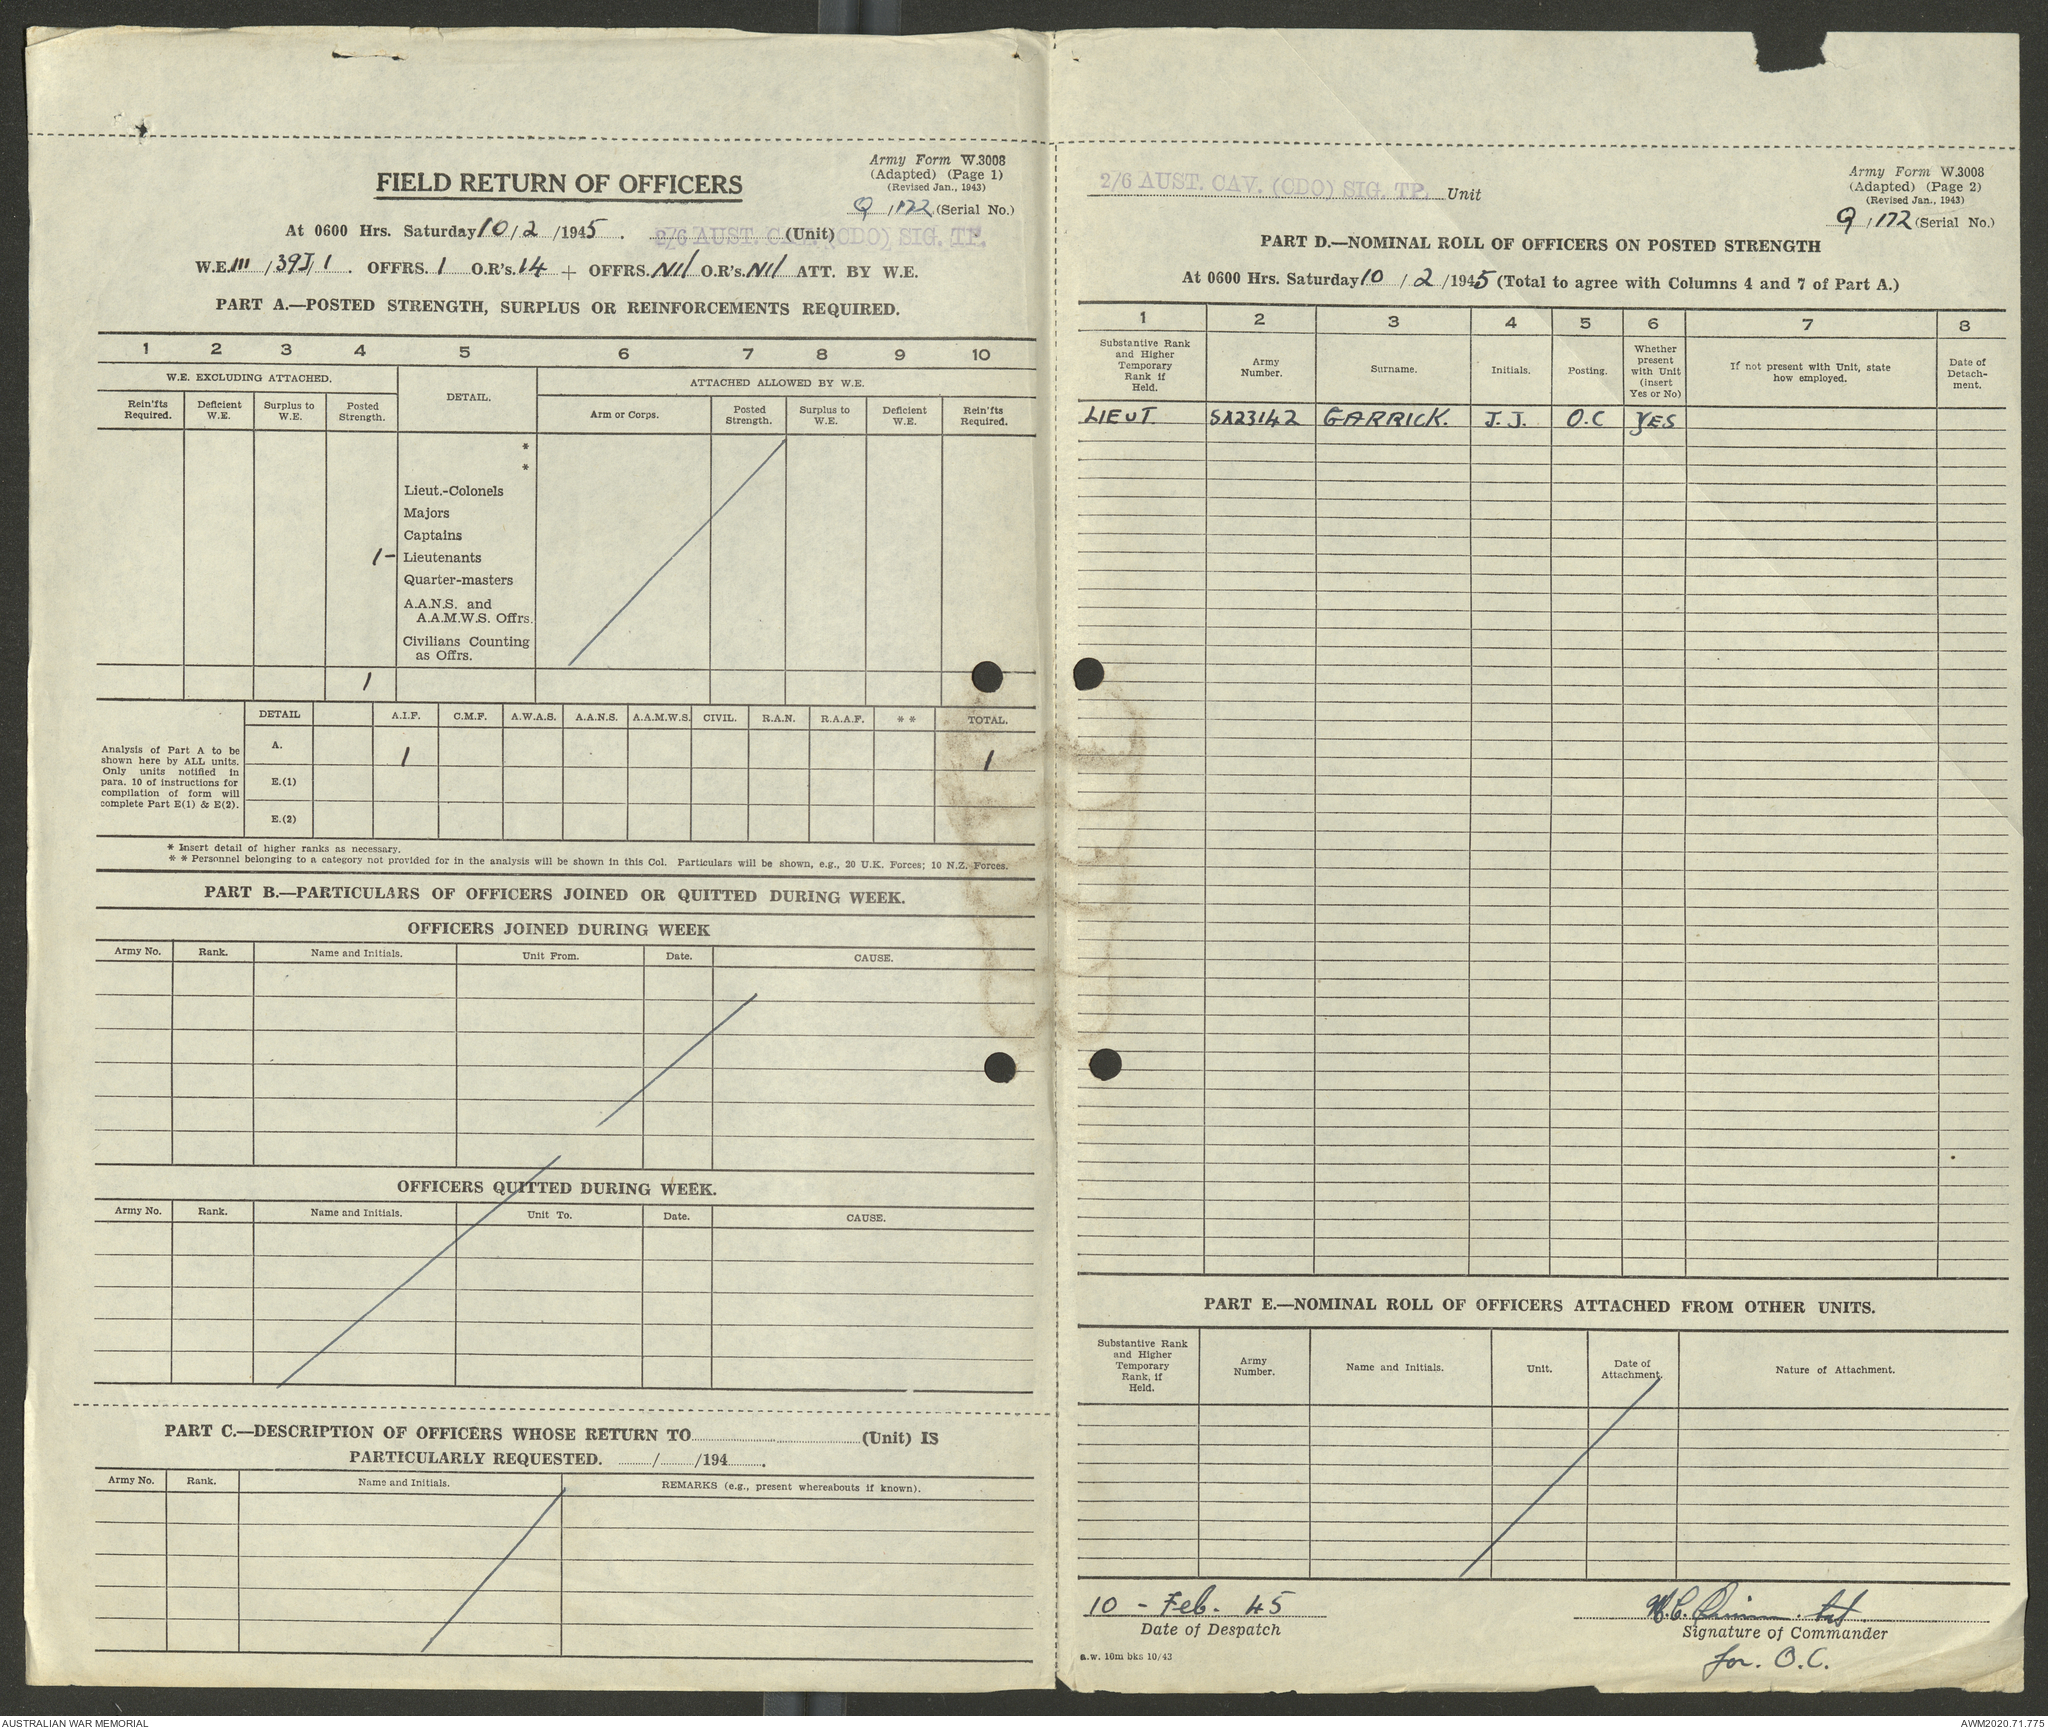 Army Form W.3008
(Adapted) (Page 1)
(Revised Jan., 1943)
FIELD RETURN OF OFFICERS
Q /172 (Serial No.)
At 0600 Hrs. Saturday 10/2/1945. 2/6 AUST. CAV. (CDO) SIG. TP. (Unit)
W.E. III /39J/1. OFFRS. 1 O.R's. 14 + OFFRS. Nil O.R's. Nil ATT. BY W.E.
PART A.—POSTED STRENGTH, SURPLUS OR REINFORCEMENTS REQUIRED.
1 2 3 4 5 6 7 8 9 10
W.E. EXCLUDING ATTACHED. DETAIL. ATTACHED ALLOWED BY W.E.
Rein'fts Required. Deficient W.E. Surplus to W.E. Posted Strength. Arm or Corps. Posted Strength. Surplus to W.E. Deficient W.E. Rein'fts Required.
*
*
Lieut.-Colonels
Majors
Captains
1 – Lieutenants
Quarter-masters
A.A.N.S. and
A.A.M.W.S. Offrs.
Civilians Counting
as Offrs.
1
DETAIL A.I.F. C.M.F. A.W.A.S. A.A.N.S. A.A.M.W.S. CIVIL. R.A.N. R.A.A.F. * * TOTAL.
Analysis of Part A to be
shown here by ALL units.
Only units notified in
para. 10 of instructions for
compilation of form will
complete Part E(1) & E(2).
A. 1 1
E.(1)
E.(2)
* Insert detail of higher ranks as necessary.
* * Personnel belonging to a category not provided for in the analysis will be shown in this Col. Particulars will be shown, e.g., 20 U.K. Forces; 10 N.Z. Forces.
PART B.—PARTICULARS OF OFFICERS JOINED OR QUITTED DURING WEEK.
OFFICERS JOINED DURING WEEK
Army No. Rank. Name and Initials. Unit From. Date. CAUSE.
OFFICERS QUITTED DURING WEEK.
Army No. Rank. Name and Initials. Unit To. Date. CAUSE.
PART C.—DESCRIPTION OF OFFICERS WHOSE RETURN TO (Unit) IS
PARTICULARLY REQUESTED. / /194 .
Army No. Rank. Name and Initials. REMARKS (e.g., present whereabouts if known).
Army Form W.3008
(Adapted) (Page 2)
(Revised Jan., 1943)
2/6 AUST. CAV. (CDO) SIG. TP. Unit
Q /172 (Serial No.)
PART D.—NOMINAL ROLL OF OFFICERS ON POSTED STRENGTH
At 0600 Hrs. Saturday 10/2/1945 (Total to agree with Columns 4 and 7 of Part A.)
1 2 3 4 5 6 7 8
Substantive Rank and Higher Temporary Rank if Held. Army Number. Surname. Initials. Posting. Whether present with Unit (insert Yes or No) If not present with Unit, state how employed. Date of Detachment.
LIEUT. SX23142 GARRICK. J.J. O.C YES
PART E.—NOMINAL ROLL OF OFFICERS ATTACHED FROM OTHER UNITS.
Substantive Rank and Higher Temporary Rank, if Held. Army Number. Name and Initials. Unit. Date of Attachment. Nature of Attachment.
10 - Feb. 45
Date of Despatch
Signature of Commander
for. O.C.
a.w. 10m bks 10/43
AUSTRALIAN WAR MEMORIAL
AWM2020.71.775